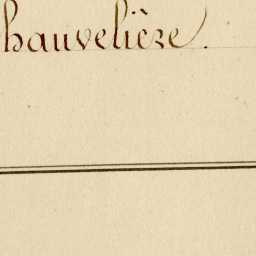 hauvelière.